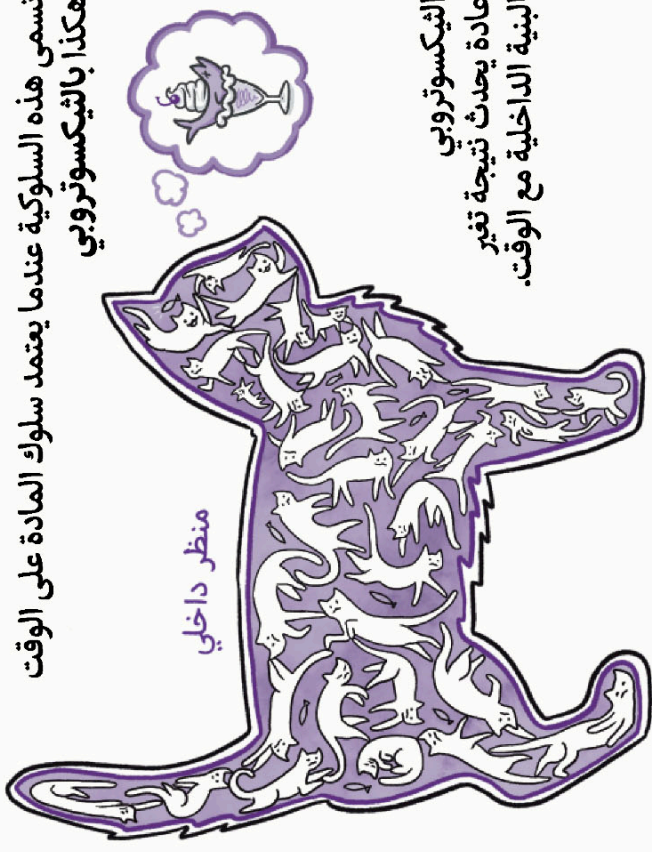 تسمى هذه السلوكية عندما يعتمد سلوك المادة على الوقت
هكذا بالثيكسوتروبي
منظر داخلي
الثيكسوتروبي
عادة يحدث نتيجة تغير
البنية الداخلية مع الوقت.